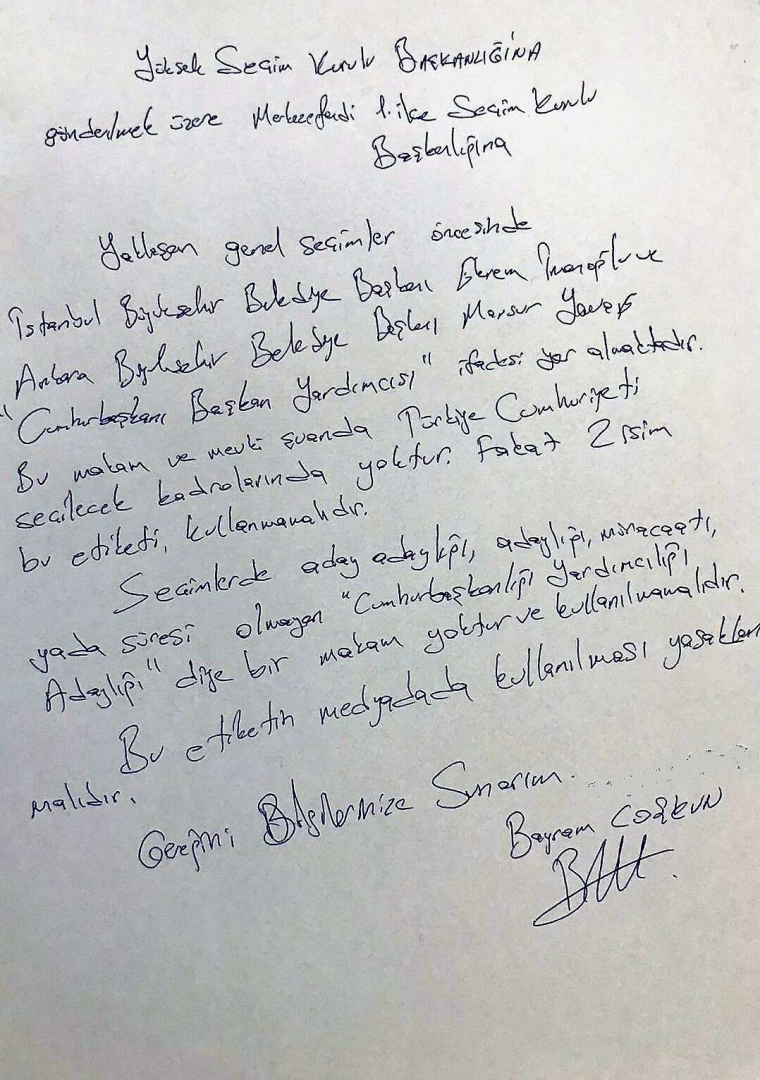 Yüksek Seçim Kurulu BAŞKANLIĞINA
gönderilmek üzere Merkezefendi 1. ilçe Seçim Kurulu
Başkanlığına
Yaklaşan genel seçimler öncesinde
İstanbul Büyükşehir Belediye Başkanı Ekrem İmamoğlu ve
Ankara Büyükşehir Belediye Başkanı Mansur Yavaş
"Cumhurbaşkanı Başkan Yardımcısı" ifadesi yer almaktadır.
Bu makam ve mevki şuanda Türkiye Cumhuriyeti
seçilecek kadrolarında yoktur. Fakat 2 isim
bu etiketi, kullanmamalıdır.
Seçimlerde aday adaylığı, adaylığı, müracaatı,
yada süresi olmayan "Cumhurbaşkanlığı Yardımcılığı
Adaylığı" diye bir makam yoktur ve kullanılmamalıdır.
Bu etiketin medyadada kullanılması yasaklan
malıdır.
Gereğini Bilgilerinize Sunarım.
Bayram COŞKUN